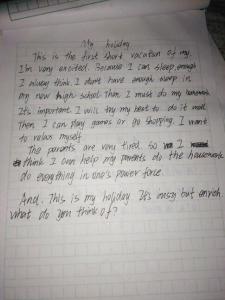 My holiday
This is the first short vacation of my.
I'm very excited. Because I can sleep enough
I alway think. I don't have enough sleep in
my new high school. Then I must do my homework
It's important. I will try my best to do it well
Then I can play games or go shopping. I want
to relax myself.
The parents are very tired. So I
think I can help my parents do the housework
do everything in one's power force.
And. This is my holiday It's busy but enrich.
What do you think of?